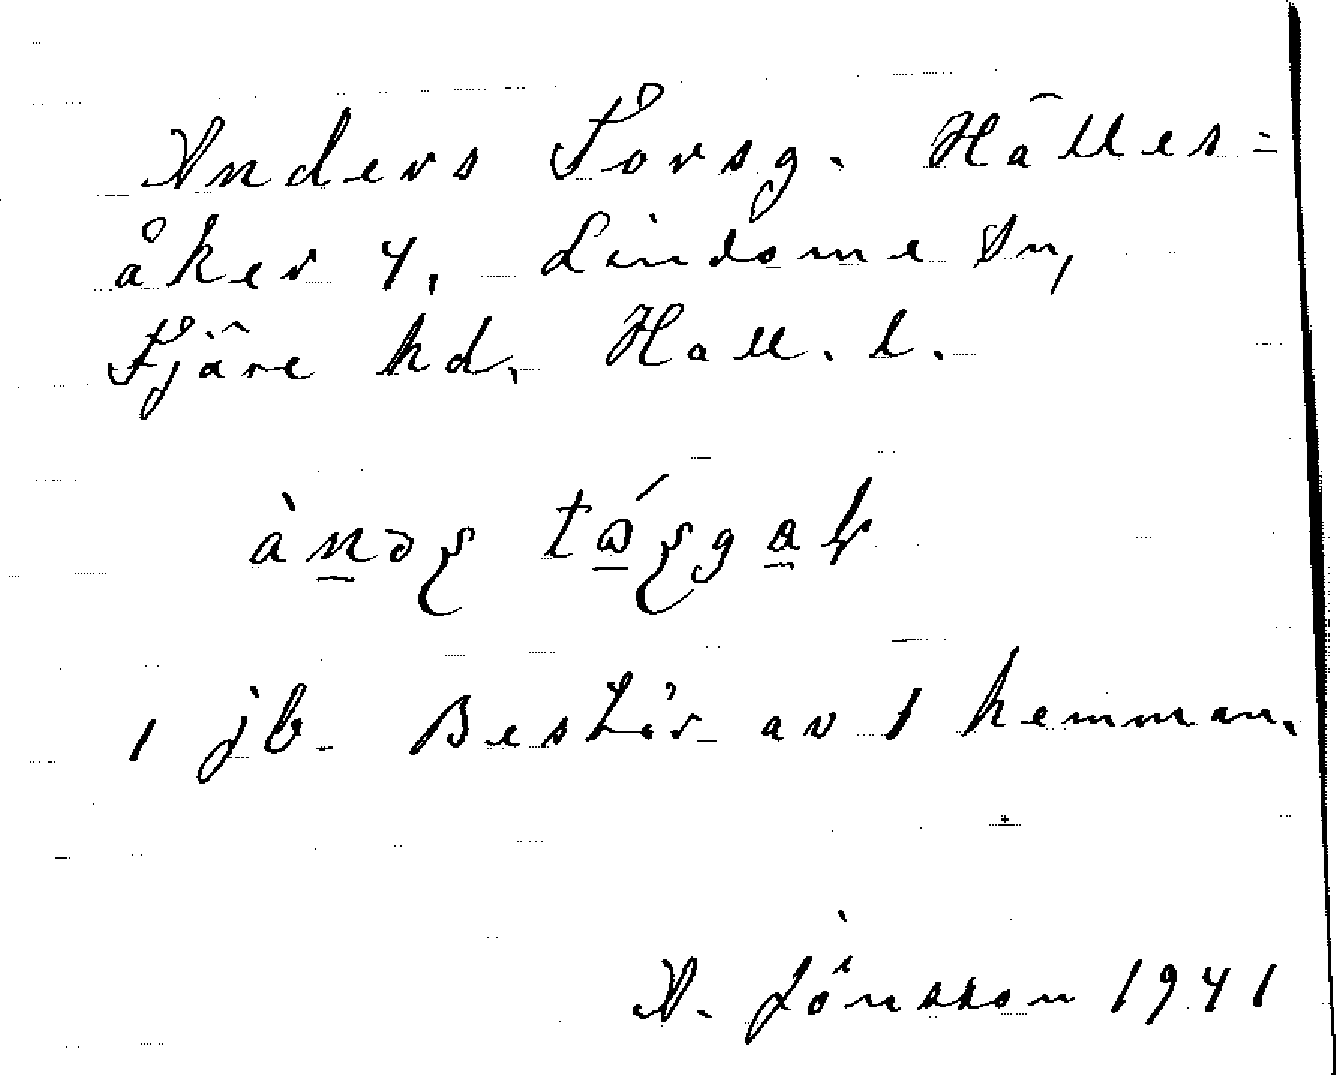 Anders Torsg. Hälles=
åker 4, Lindome sn,
Fjäre hd, Hall. l.
1 jb. Består av 1 hemman.
A. Jönsson 1941